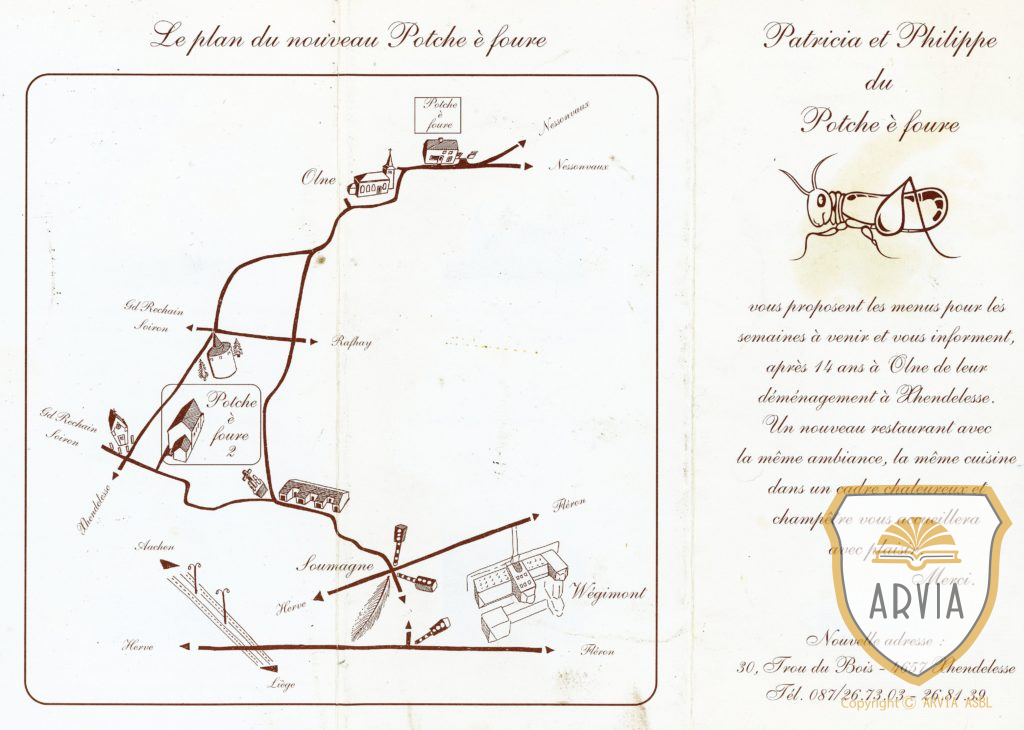 Le plan du nouveau Potche è foure
Potche
è
foure
Nessonvaux
Nessonvaux
Olne
Gd Rechain
Soiron
Rafhay
Potche
è
foure
2
Gd Rechain
Soiron
Xhendelesse
Aachen
Soumagne
Fléron
Herve
Wégimont
Herve
Fléron
Liège
Patricia et Philippe
du
Potche è foure
vous proposent les menus pour les
semaines à venir et vous informent,
après 14 ans à Olne de leur
déménagement à Xhendelesse.
Un nouveau restaurant avec
la même ambiance, la même cuisine
dans un cadre chaleureux et
champêtre vous accueillera
avec plaisir.
Merci.
Nouvelle adresse :
30, Trou du Bois - 4657 Xhendelesse
Tél. 087/26.73.03 - 26.81.39
ARVIA
Copyright © ARVIA ASBL